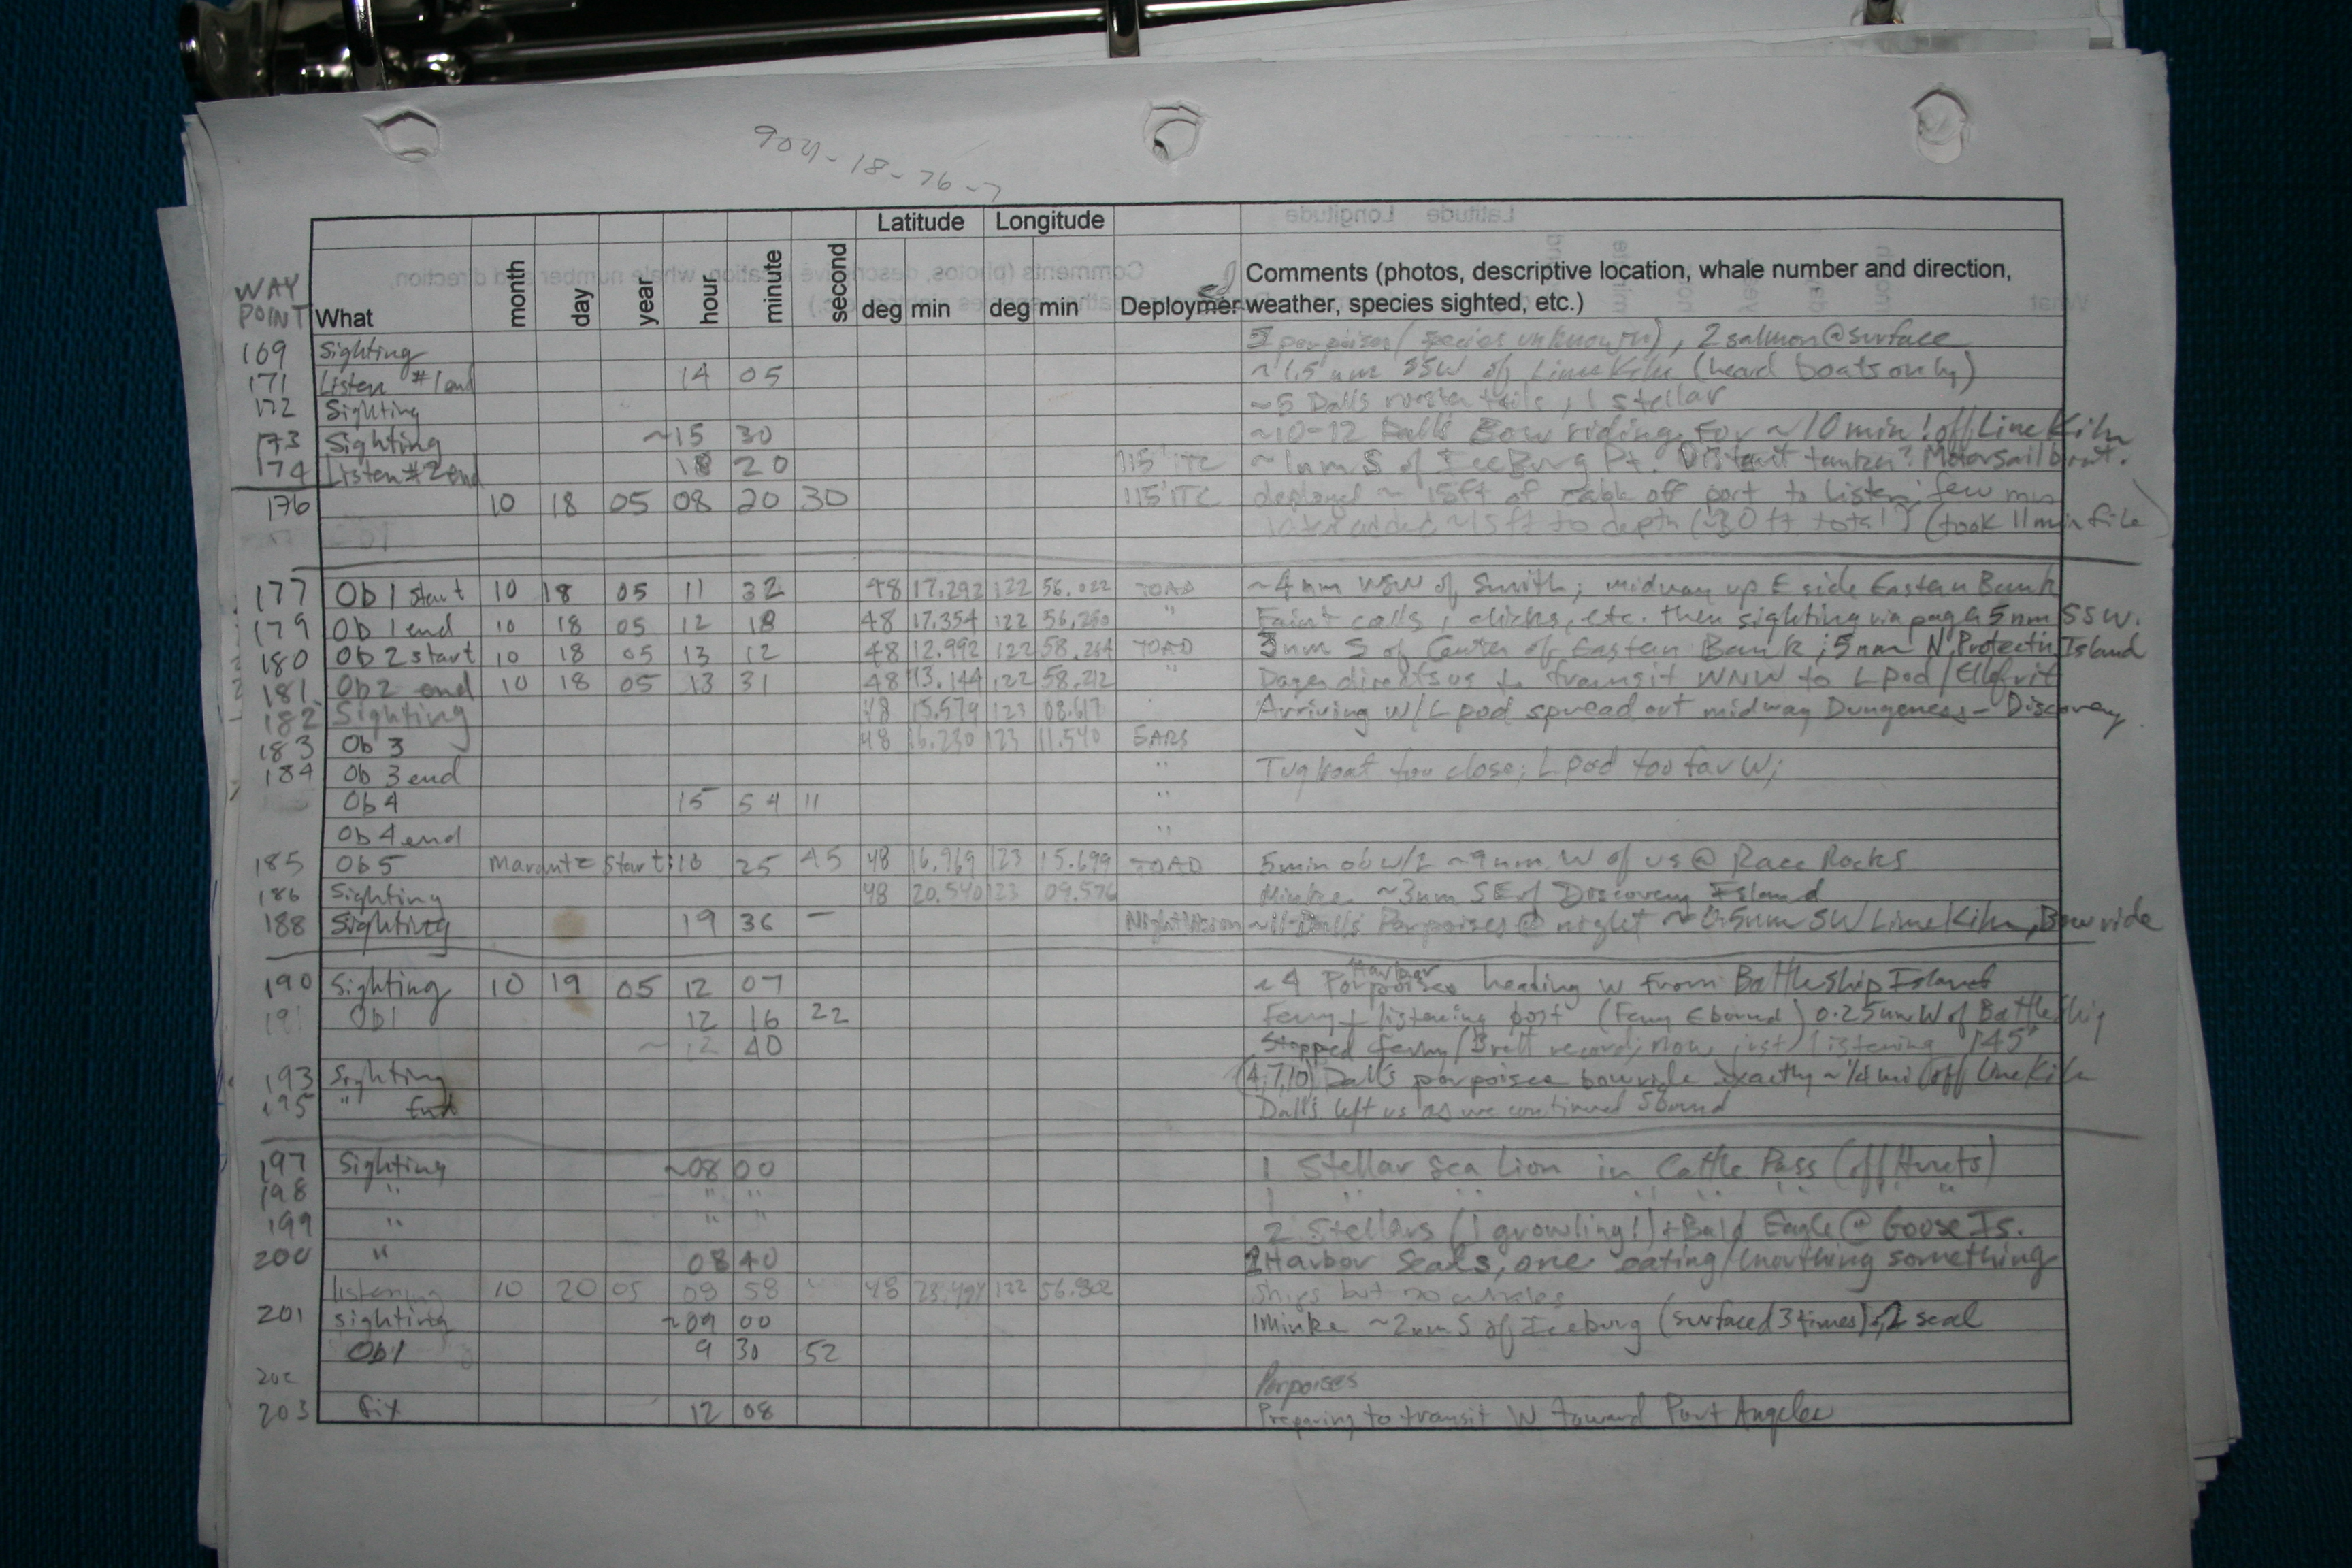 Latitude Longitude
WAY POINT What month day year hour minute second deg min deg min Deploymen Comments (photos, descriptive location, whale number and direction, weather, species sighted, etc.)
169 Sighting porpoises (species unknown), 2 salmon @ surface
171 Listen #1 end 14 05 ~1.5 nm SSW of Lime Kiln (heard boats only)
172 Sighting ~5 Dalls rooster tails, 1 stellar
173 Sighting ~15 30 ~10-12 Dall's Bow riding for ~10 min! off Lime Kiln
174 Listen #2 end 18 20 115' ITC ~1nm S of IceBurg Pt. Distant tanker? Motorsailboat.
176 10 18 05 08 20 30 115' ITC deployed ~15ft of cable off port to listen; few min
later added ~15 ft to depth (~30 ft total) (took 11 min file)
177 Ob 1 start 10 18 05 11 32 48 17.292 122 56.022 TOAD ~4nm WSW of Smith; midway up E side Eastern Bank
179 Ob 1 end 10 18 05 12 18 48 17.354 122 56.250 " Faint calls, clicks, etc. then sighting via pager 5nm SSW.
180 Ob 2 start 10 18 05 13 12 48 12.992 122 58.264 TOAD 3nm S of Center of Eastern Bank; 5nm N. Protectn Island
181 Ob 2 end 10 18 05 13 31 48 13.144 122 58.212 " directs us to transit WNW to L pod/
182 Sighting 48 15.579 123 08.617 Arriving w/ L pod spread out midway Dungeness - Discovery
183 Ob 3 48 16.230 123 11.540 EARS
184 Ob 3 end " Tugboat too close; L pod too far W;
Ob 4 15 54 11 "
Ob 4 end "
185 Ob 5 Marantz start: 25 45 48 16.969 123 15.699 TOAD 5min ob w/L ~9nm W of us @ Race Rocks
186 Sighting 48 20.540 123 09.576 Minke ~3nm SE of Discovery Island
188 Sighting 19 36 — NightVision Dall's Porpoises @ night ~0.5nm SW Lime Kiln, Bow ride
190 Sighting 10 19 05 12 07 ~4 Harbor Porpoises heading W from Battleship Island
191 Ob1 12 16 22 Ferry + listening post (Ferry E bound) 0.25nm W of Battleship
~12 40 Stopped ferry/Brett record; now just listening 145'
193 Sighting (4,7,10) Dall's porpoises bowride exactly ~1/4 mi off Lime Kiln
195 " End Dall's left us as we continued S bound
197 Sighting ~08 00 1 Stellar Sea Lion in Cattle Pass (off)
198 " " " 1 " " " " " "
199 " " " 2 Stellars (1 growling!) + Bald Eagle @ Goose Is.
200 " 08 40 Harbor Seals, one eating/mouthing something
listening 10 20 05 08 58 48 122 56.802 Ships but no whales
201 sighting ~09 00 1 Minke ~2nm S of Iceburg (surfaced 3 times); 2 seal
Ob1 9 30 52
202 Porpoises
203 fix 12 08 Preparing to transit W toward Port Angeles